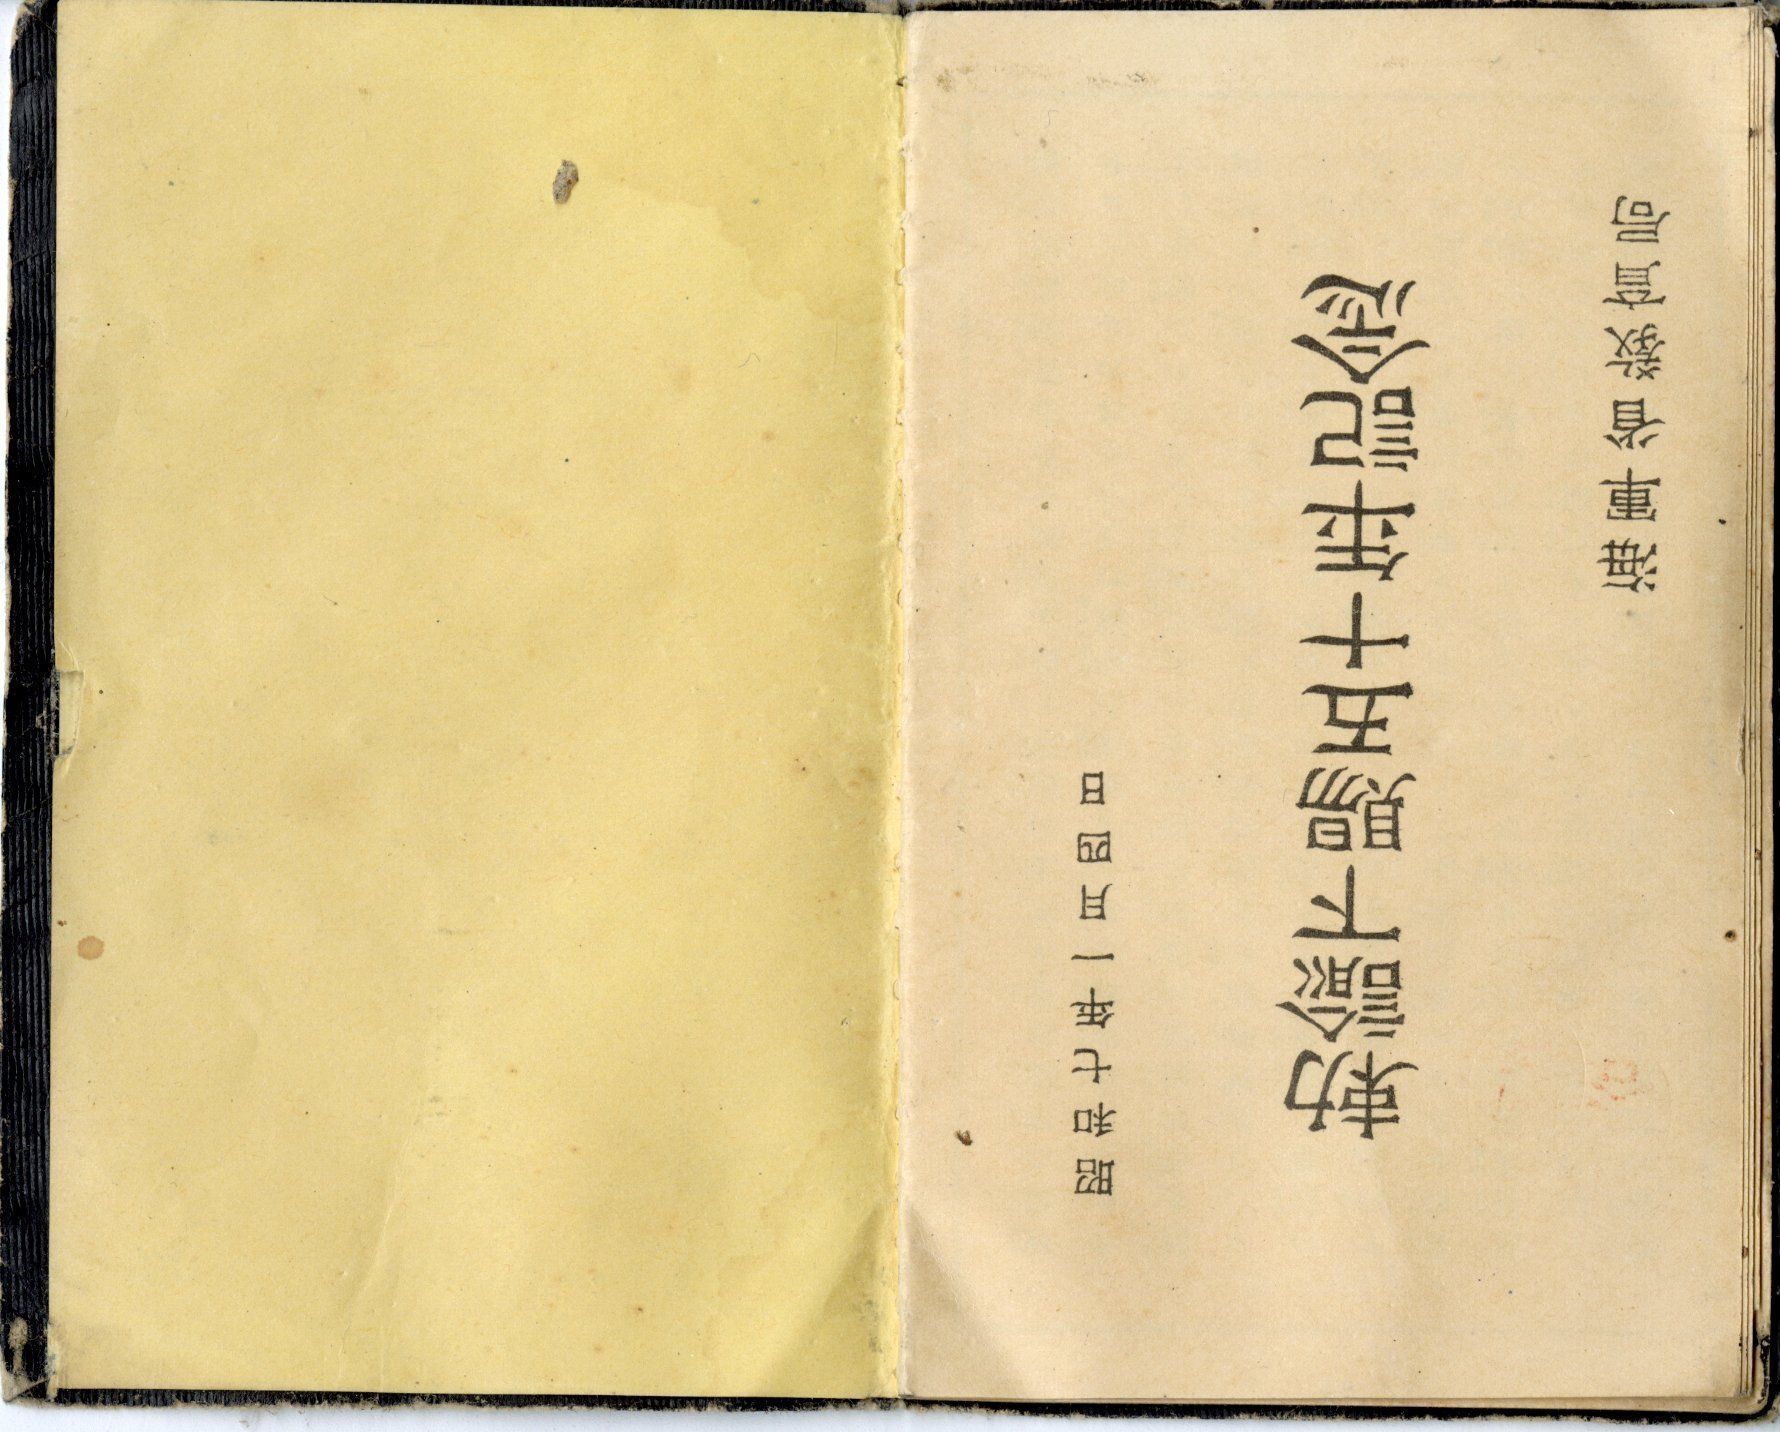 昭和七年一月四日
勅諭下賜五十年記念
海軍省教育局